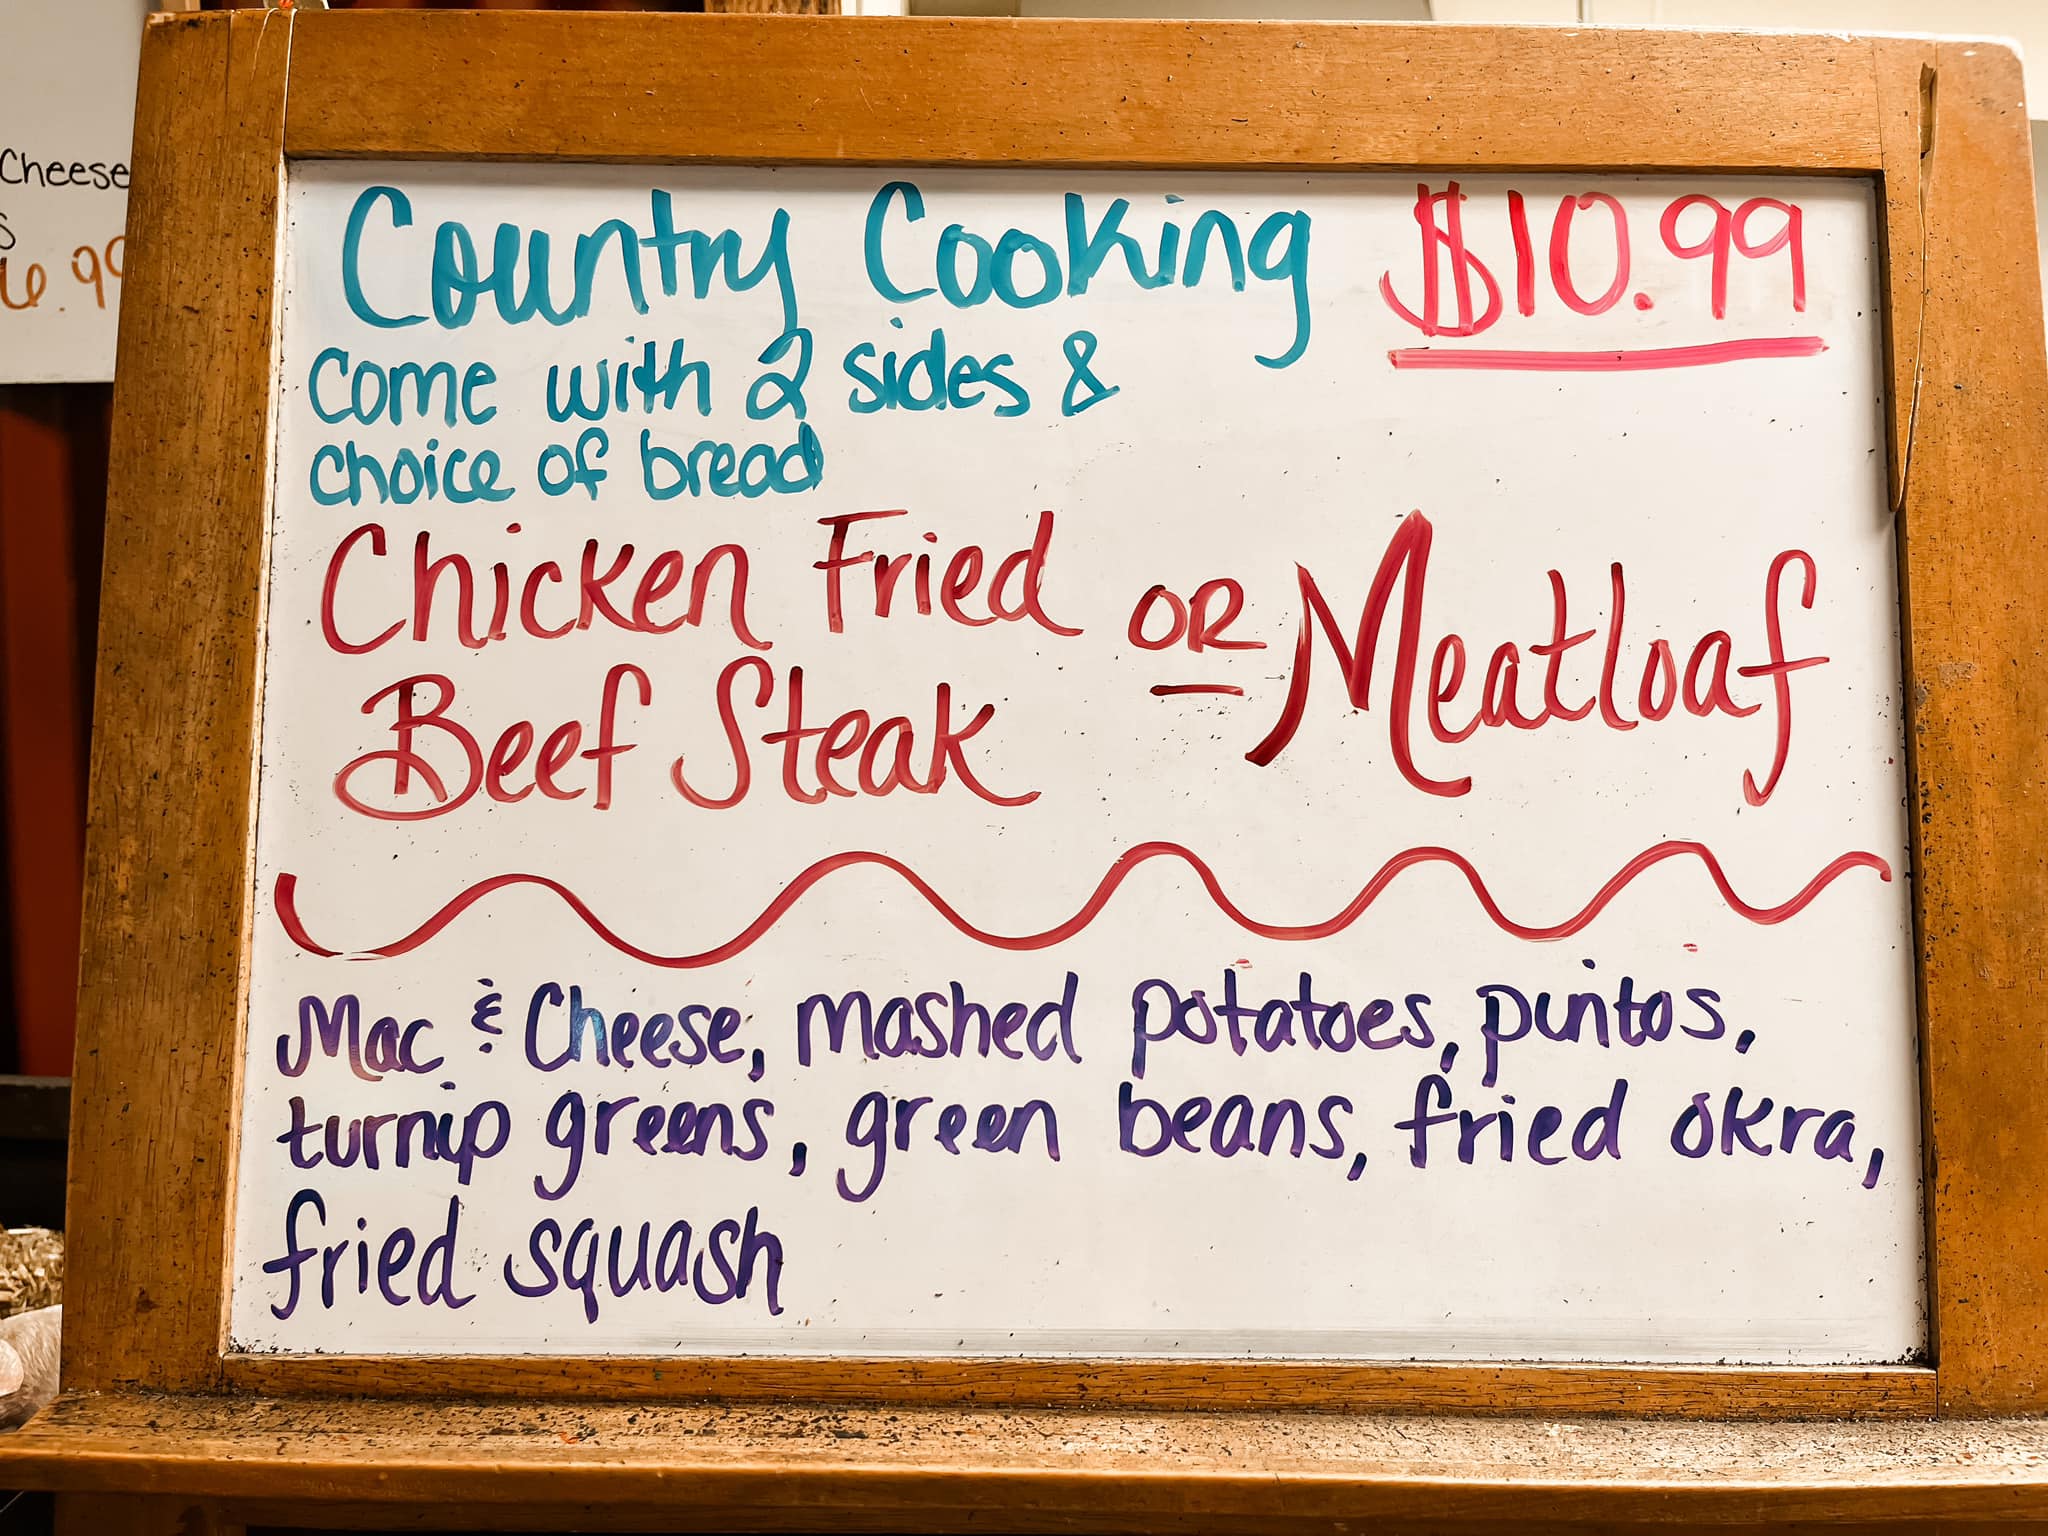 Cheese
s
6.99
Country Cooking $10.99
Come with 2 sides &
choice of bread
Chicken Fried OR Meatloaf
Beef Steak
Mac & Cheese, mashed potatoes, pintos,
turnip greens, green beans, fried okra,
fried squash